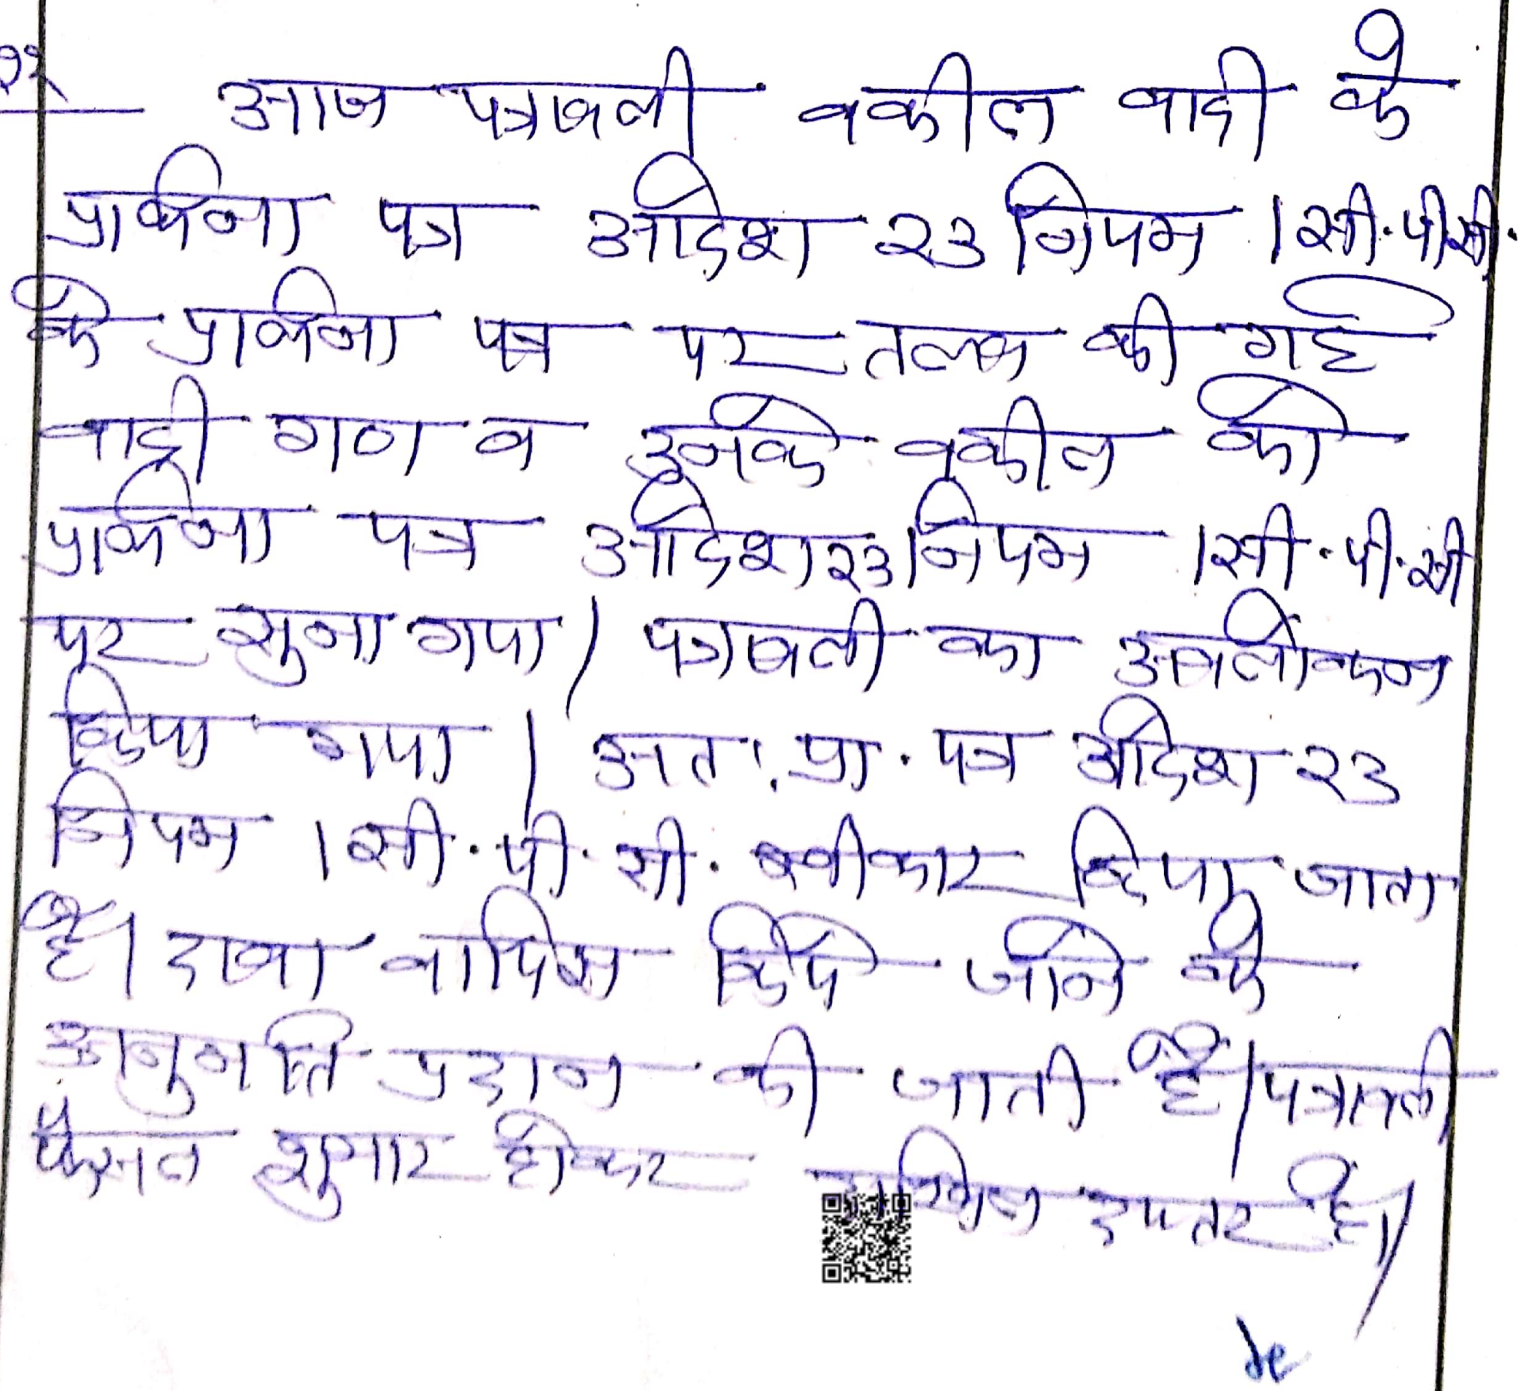 आज पत्रावली वकील वादी के
प्रार्थना पत्र आदेश 23 नियम 1 सी.पी.सी.
के प्रार्थना पत्र पर तलब की गई
वादी गण व उनके वकील को
प्रार्थना पत्र आदेश 23 नियम 1 सी.पी.सी
पर सुना गया। पत्रावली का अवलोकन
किया गया। अतः प्रा. पत्र आदेश 23
नियम 1 सी.पी.सी. स्वीकार किया जाता
है। दावा वापिस किये जाने की
अनुमति प्रदान की जाती है। पत्रावली
फैसल शुमार होकर दाखिल दफ्तर हो।